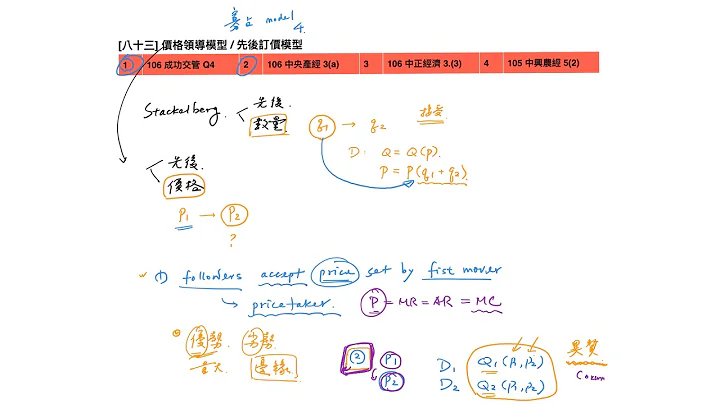 寡占 model 4.
[八十三] 價格領導模型 / 先後訂價模型
1 106 成功交管 Q4 2 106 中央產經 3(a) 3 106 中正經濟 3.(3) 4 105 中興農經 5(2)
Stackelberg. < 先後. 數量
q1 → q2 接受
D: Q = Q(p).
P = P(q1 + q2).
< 先後. 價格
P1 → P2
?
(1) followers accept price set by fist mover
↳ price taker. P = MR = AR = MC
優勢 劣勢
邊緣
(2) P1
P2
D1 Q1(P1, P2)
D2 Q2(P1, P2)
異質